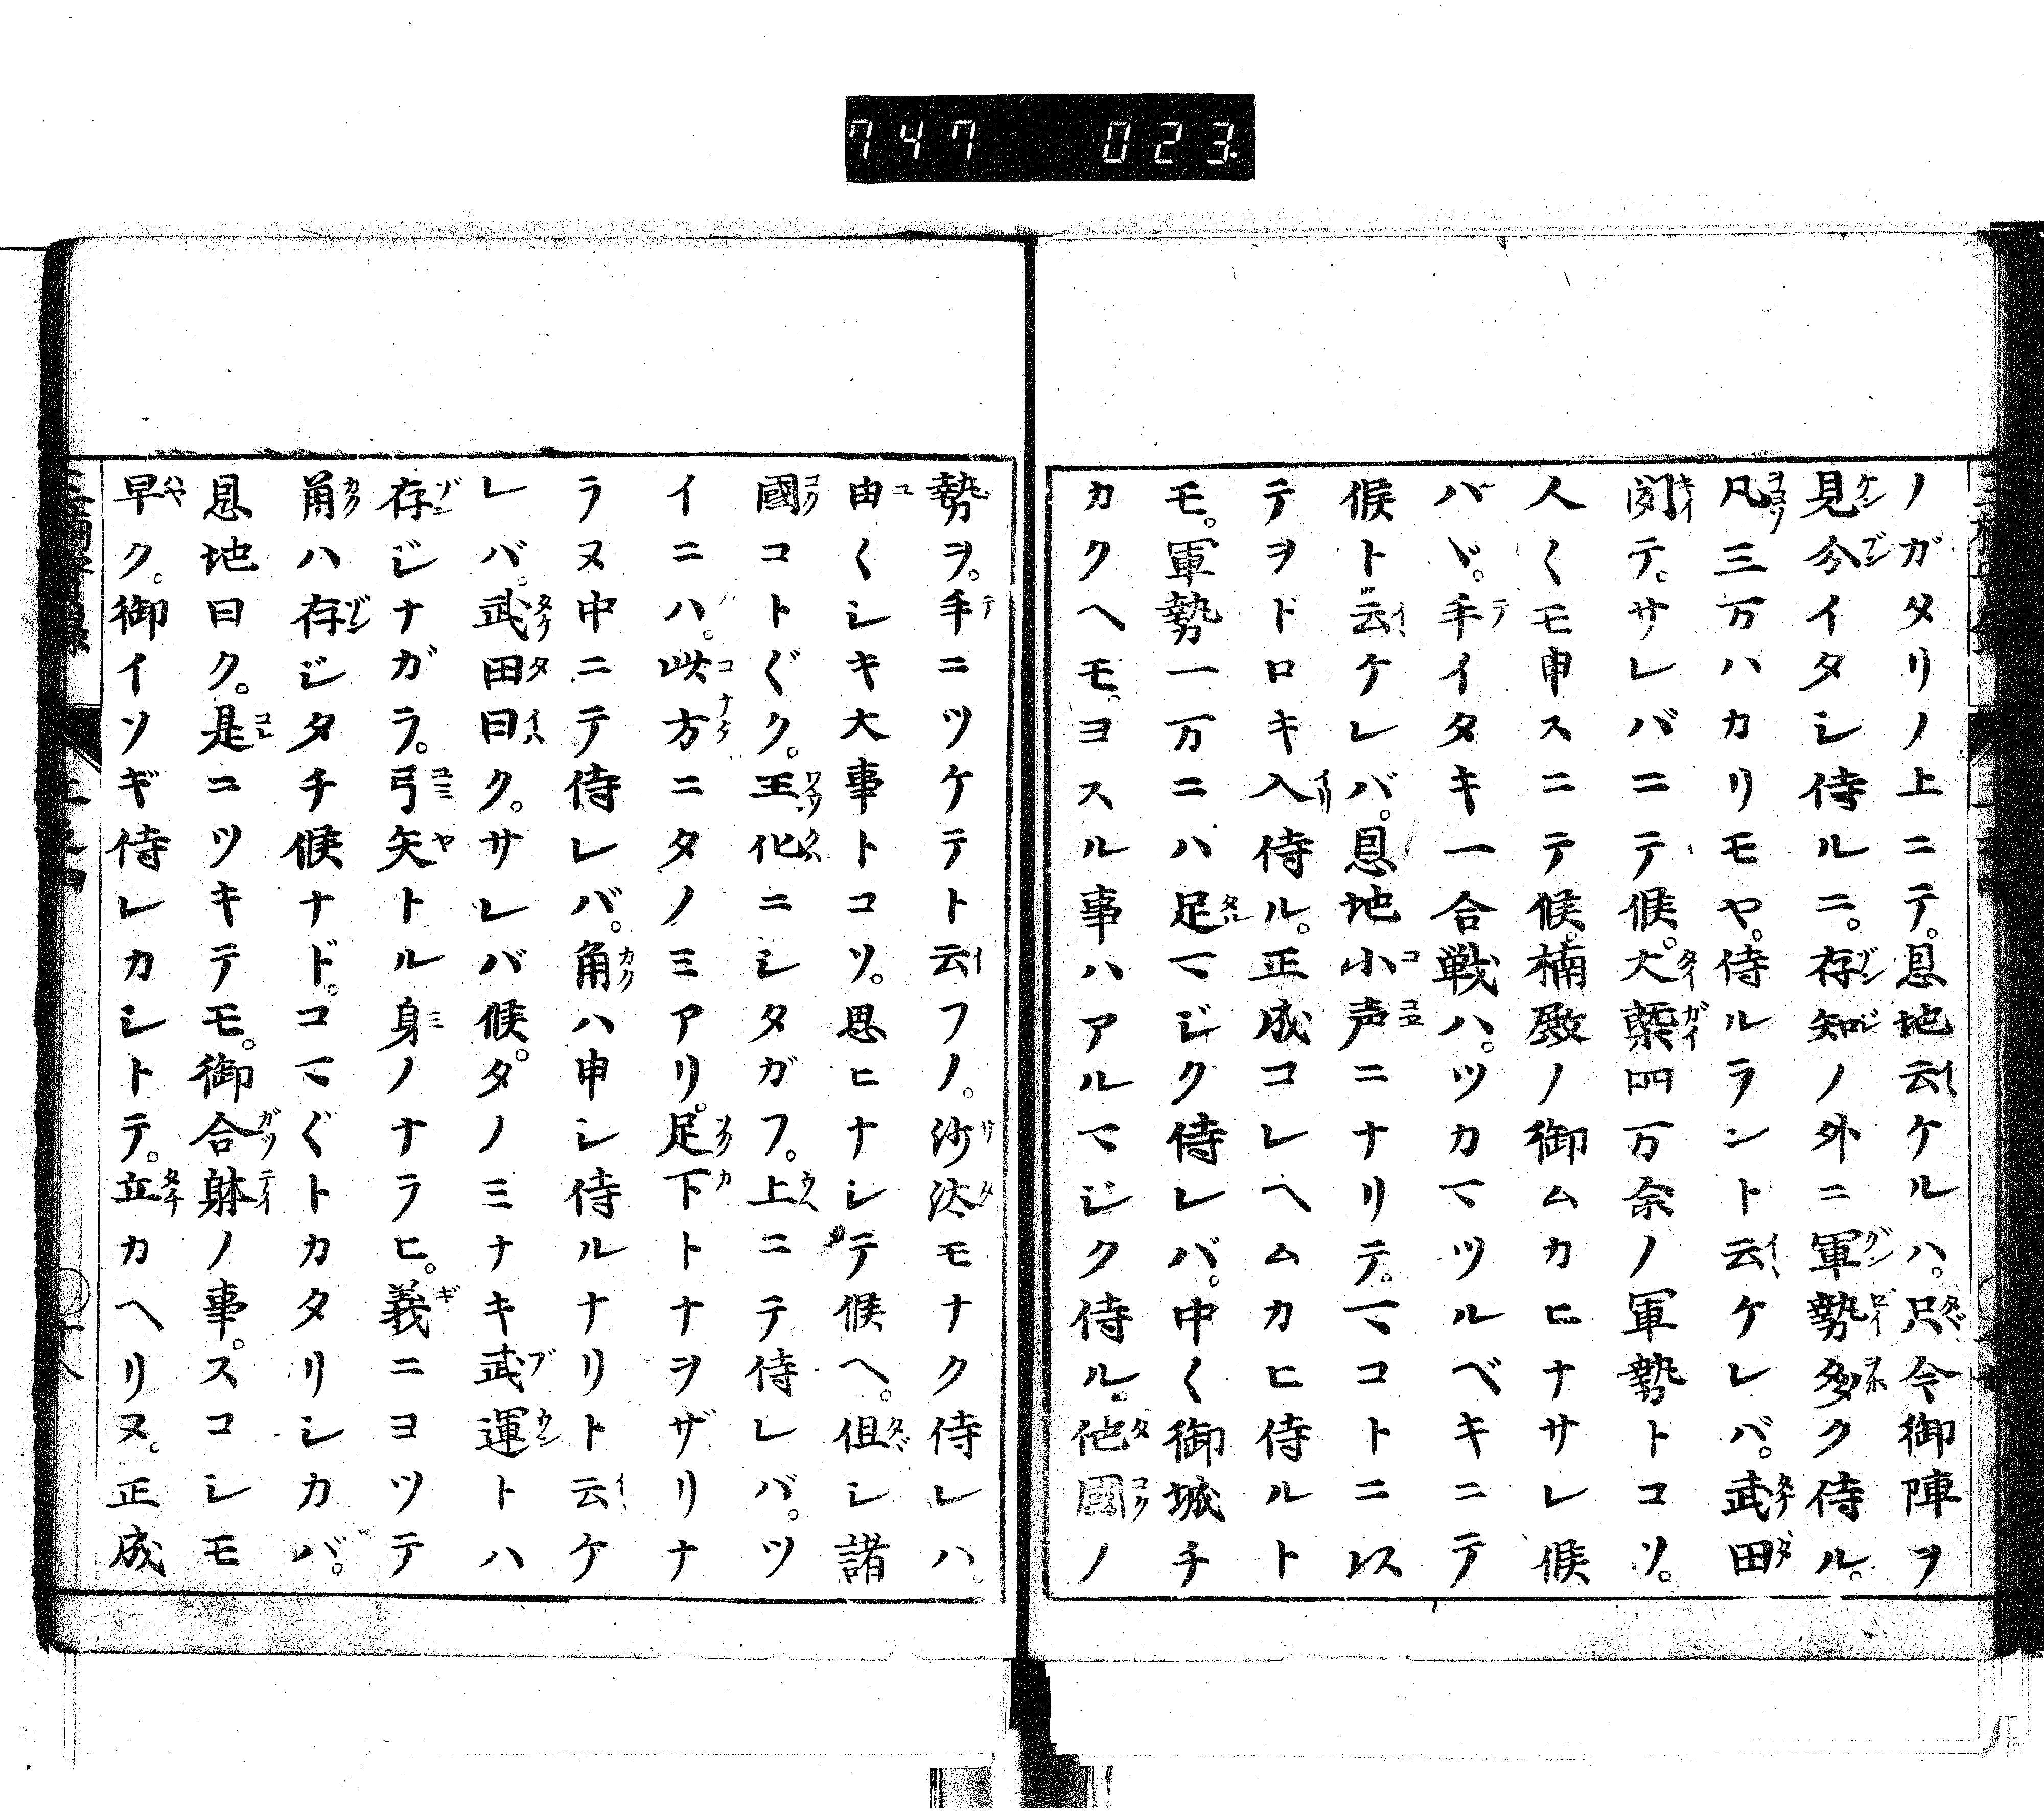 747 023
ノガタリノ上ニテ。恩地云ケルハ。只今御陣ヲ
見分イタシ侍ルニ。存知ノ外ニ軍勢多ク侍ル。
凡三万ハカリモヤ。侍ルラントト云ケレバ。武田
聞テ。サレバニテ候。大槩四万余ノ軍勢トコソ。
人〱モ申スニテ候。楠殿ノ御ムカヒナサレ候
バヾ。手イタキ一合戦ハ。ツカマツルベキニテ
候ト云ケレバ。恩地小声ニナリテ。マコトニレス
テヲドロキ入侍ル。正成コレヘムカヒ侍ルト
モ。軍勢一万ニハ足マジク侍レバ。中〱御城チ
カクヘモ。ヨスル事ハアルマジク侍ル。他國ノ
勢ヲ。手ニツケテト云フノ。沙汰モナク侍レハ。
由〱シキ大事トコソ。思ヒナシテ候ヘ。但シ諸
國コト〲ク。王化ニシタガフ。上ニテ侍レバ。ツ
イニハ。此方ニタノミアリ。足下トナヲザリナ
ラヌ中ニテ侍レバ。角ハ申シ侍ルナリト云ケ
レバ。武田曰ク。サレバ候。タノミナキ武運トハ
存ジナガラ。弓矢トル身ノナラヒ。義ニヨツテ
角ハ存ジタチ候ナド。コマ〲トカタリシカバ。
恩地曰ク。是ニツキテモ。御合躰ノ事。スコシモ
早ク。御イソギ侍レカシトテ。立カヘリヌ。正成